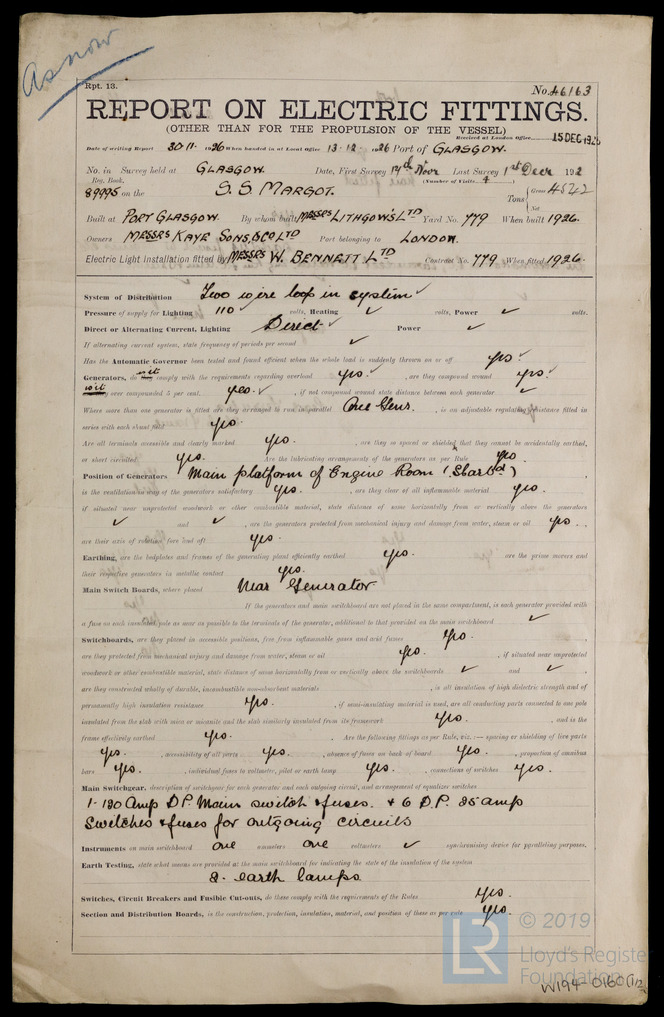 As now
Rpt. 13.
No. 46163
REPORT ON ELECTRIC FITTINGS.
(OTHER THAN FOR THE PROPULSION OF THE VESSEL)
Received at London Office 15 DEC 1926
Date of writing Report 30.11.1926 When handed in at Local Office 13.12.1926 Port of GLASGOW.
No. in Survey held at GLASGOW. Date, First Survey 17th Novr Last Survey 1st Decr 192
Reg. Book. (Number of Visits 4)
89995 on the S.S. MARGOT. Tons { Gross 4542
Net
Built at PORT GLASGOW. By whom built MESSRS LITHGOWS LTD Yard No. 779 When built 1926.
Owners MESSRS KAYE SONS, & CO LTD Port belonging to LONDON.
Electric Light installation fitted by MESSRS W. BENNETT LTD Contract No. 779 When fitted 1926.
System of Distribution Two wire loop in system ✓
Pressure of supply for Lighting 110 ✓ volts, Heating ✓ volts, Power ✓ volts.
Direct or Alternating Current, Lighting Direct ✓ Power ✓
If alternating current system, state frequency of periods per second ✓
Has the Automatic Governor been tested and found efficient when the whole load is suddenly thrown on or off yes ✓
Generators, do they comply with the requirements regarding overload yes. ✓, are they compound wound yes. ✓
over compounded 5 per cent. yes. ✓, if not compound wound state distance between each generator ✓
Where more than one generator is fitted are they arranged to run in parallel One Genr., is an adjustable regulating resistance fitted in
series with each shunt field yes.
Are all terminals accessible and clearly marked yes., are they so spaced or shielded that they cannot be accidentally earthed,
or short circuited yes. Are the lubricating arrangements of the generators as per Rule yes.
Position of Generators Main platform of Engine Room (Starbd)
is the ventilation in way of the generators satisfactory yes., are they clear of all inflammable material yes.
if situated near unprotected woodwork or other combustible material, state distance of same horizontally from or vertically above the generators
✓ and ✓, are the generators protected from mechanical injury and damage from water, steam or oil yes.,
are their axis of rotation fore and aft yes.
Earthing, are the bedplates and frames of the generating plant efficiently earthed yes. are the prime movers and
their respective generators in metallic contact yes.
Main Switch Boards, where placed Near Generator
If the generators and main switchboard are not placed in the same compartment, is each generator provided with
a fuse on each insulated pole as near as possible to the terminals of the generator, additional to that provided on the main switchboard ✓
Switchboards, are they placed in accessible positions, free from inflammable gases and acid fumes yes.
are they protected from mechanical injury and damage from water, steam or oil yes., if situated near unprotected
woodwork or other combustible material, state distance of same horizontally from or vertically above the switchboards ✓ and ✓,
are they constructed wholly of durable, incombustible non-absorbent materials, is all insulation of high dielectric strength and of
permanently high insulation resistance yes., if semi-insulating material is used, are all conducting parts connected to one pole
insulated from the slab with mica or micanite and the slab similarly insulated from its framework yes., and is the
frame effectively earthed yes. Are the following fittings as per Rule, viz.:— spacing or shielding of live parts
yes., accessibility of all parts yes., absence of fuses on back of board yes., proportion of omnibus
bars yes., individual fuses to voltmeter, pilot or earth lamp yes., connections of switches yes.
Main Switchgear, description of switchgear for each generator and each outgoing circuit, and arrangement of equalizer switches
1-120 Amp D.P. Main switch & fuses. & 6 D.P. 25 amp
Switches & fuses for outgoing circuits
Instruments on main switchboard one ammeters one voltmeters ✓ synchronising device for paralleling purposes.
Earth Testing, state what means are provided at the main switchboard for indicating the state of the insulation of the system
2. earth lamps
Switches, Circuit Breakers and Fusible Cut-outs, do these comply with the requirements of the Rules yes.
Section and Distribution Boards, is the construction, protection, insulation, material, and position of these as per rule yes.
© 2019
LR Lloyd's Register
Foundation
W194-0160 (1/2)